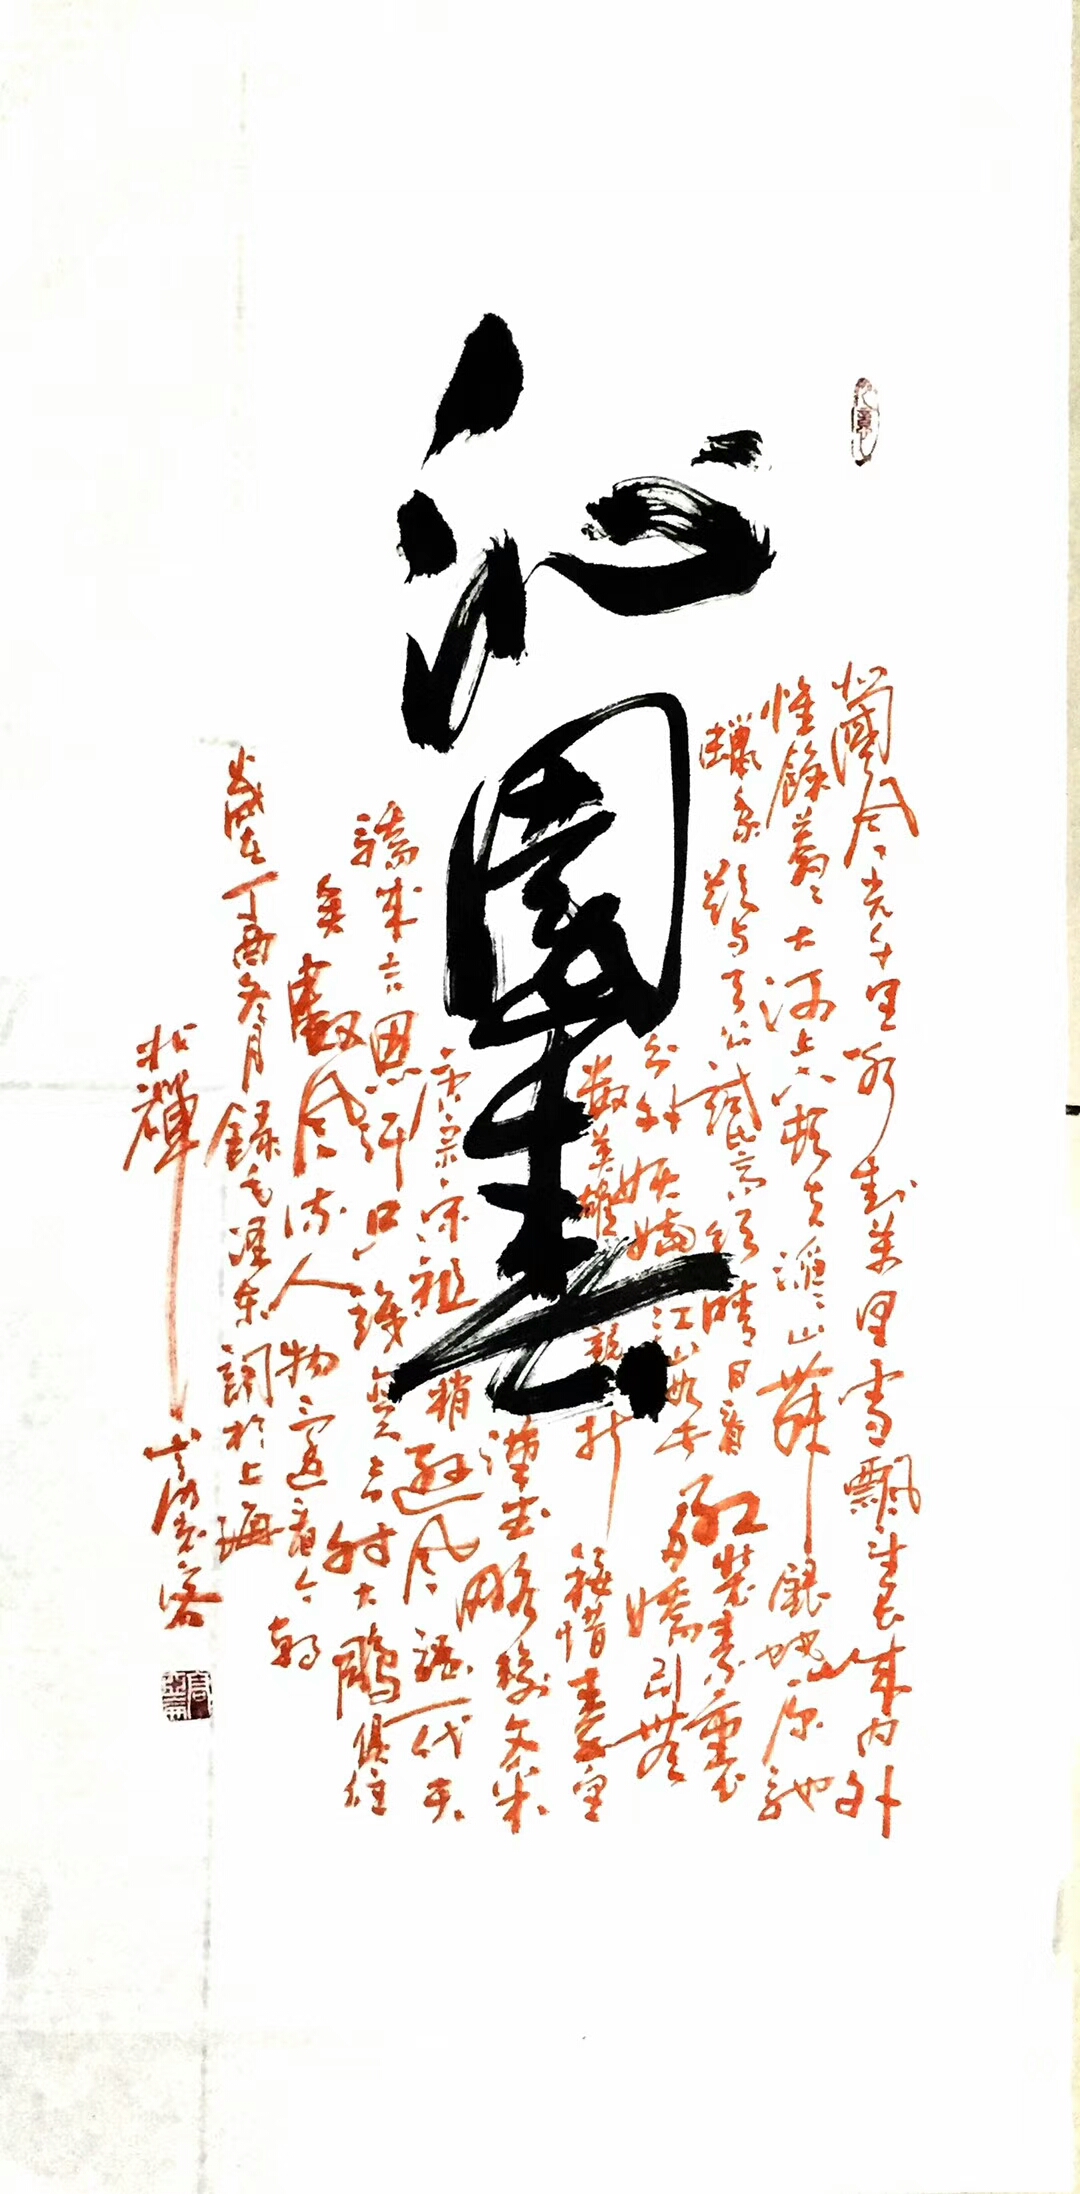 沁園春
北國風光千里冰封萬里雪飄望長城內外
惟餘莽〻大河上下頓失滔〻山舞銀蛇原馳
蠟象欲與天公試比高須晴日看紅裝素裹
分外妖嬈江山如此多嬌引無
数英雄競折腰惜秦皇
漢武略輸文采
唐宗宋祖稍遜風騷一代天
驕成吉思汗只識彎弓射大鵰俱往
矣
數風流人物還看今朝
歲在丁酉冬月錄毛澤东詞於上海